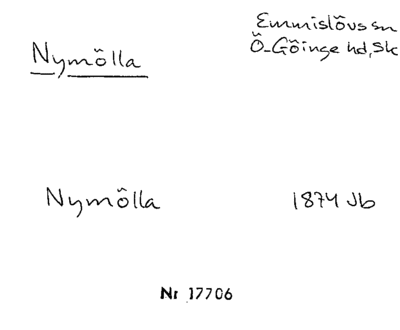 Nymölla
Emmislövs sn
Ö-Göinge hd, Sk
Nymölla
1874 Jb
Nr 17706